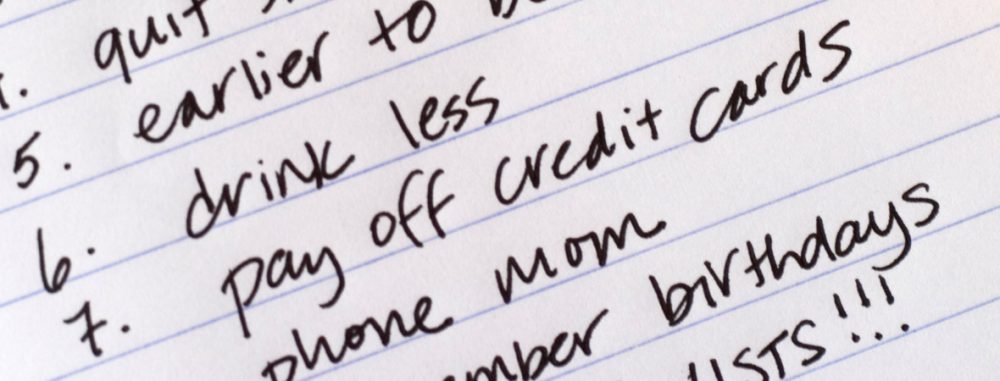 quit
5. earlier to
6. drink less
7. pay off credit cards
phone mom
birthdays